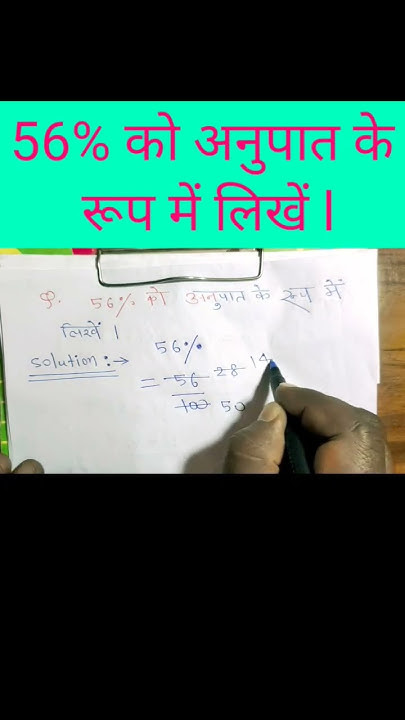 56% को अनुपात के
रूप में लिखें।
Q. 56% को अनुपात के रूप में
लिखें ।
Solution :→ 56%
= 56 28 14
100 50